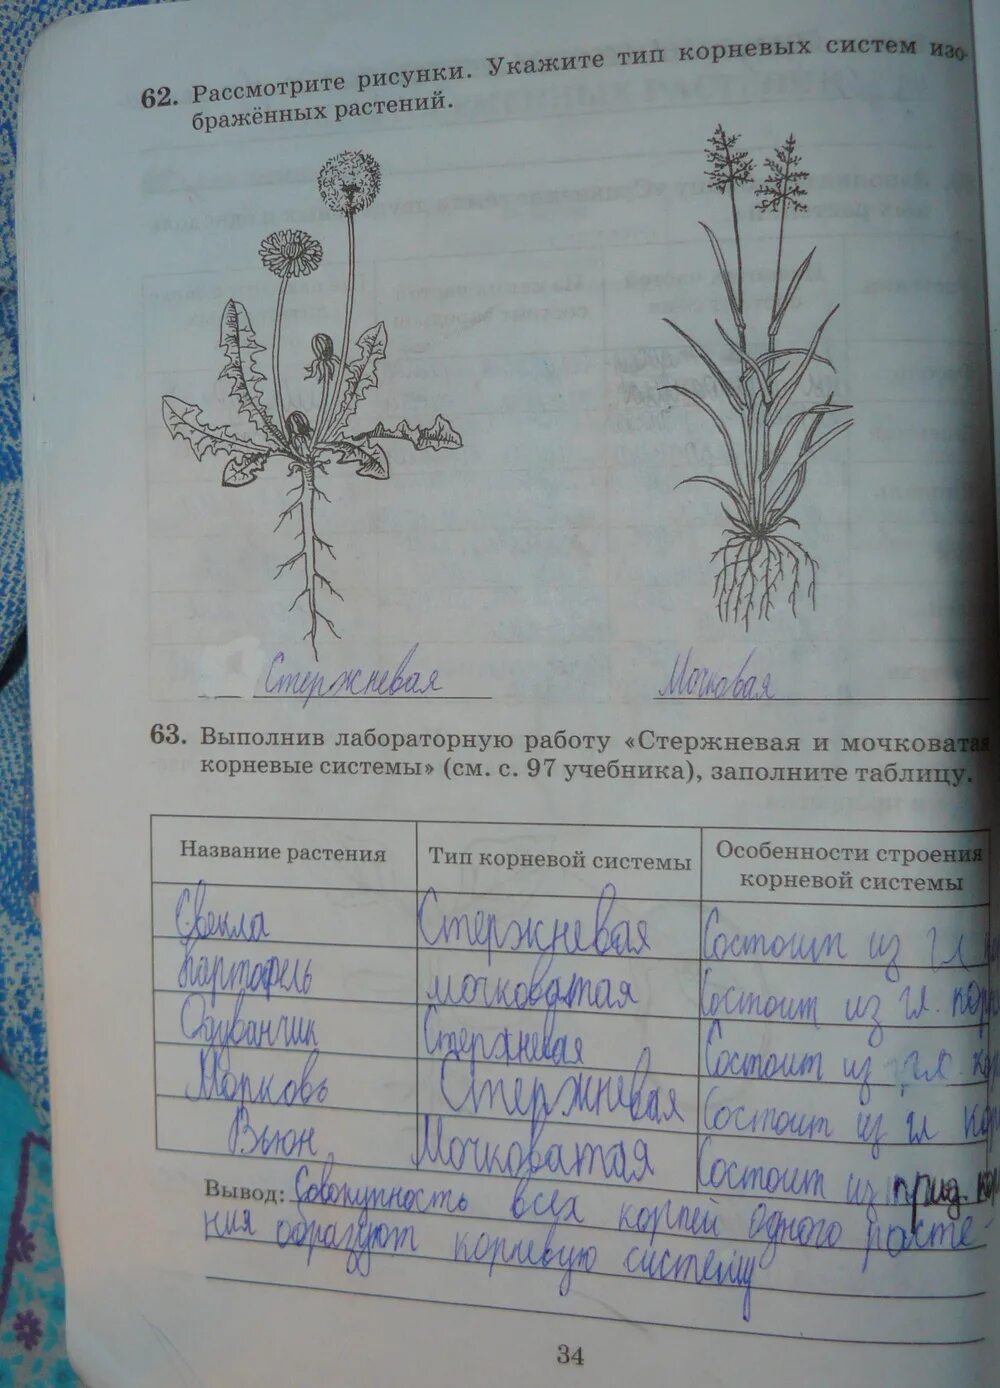 62. Рассмотрите рисунки. Укажите тип корневых систем изо-
бражённых растений.
Стержневая
Мочковая
63. Выполнив лабораторную работу «Стержневая и мочковатая
корневые системы» (см. с. 97 учебника), заполните таблицу.
Название растения
Тип корневой системы
Особенности строения
корневой системы
Свекла
Стержневая
Состоит из гл
Картофель
мочковатая
Состоит из гл. кор
Одуванчик
Стержневая
Состоит из гл. кор
Морковь
Стержневая
Состоит из гл кор
Вьюн
Мочковатая
Состоит из прид кор
Вывод: Совокупность всех корней одного расте-
ния образуют корневую систему
34